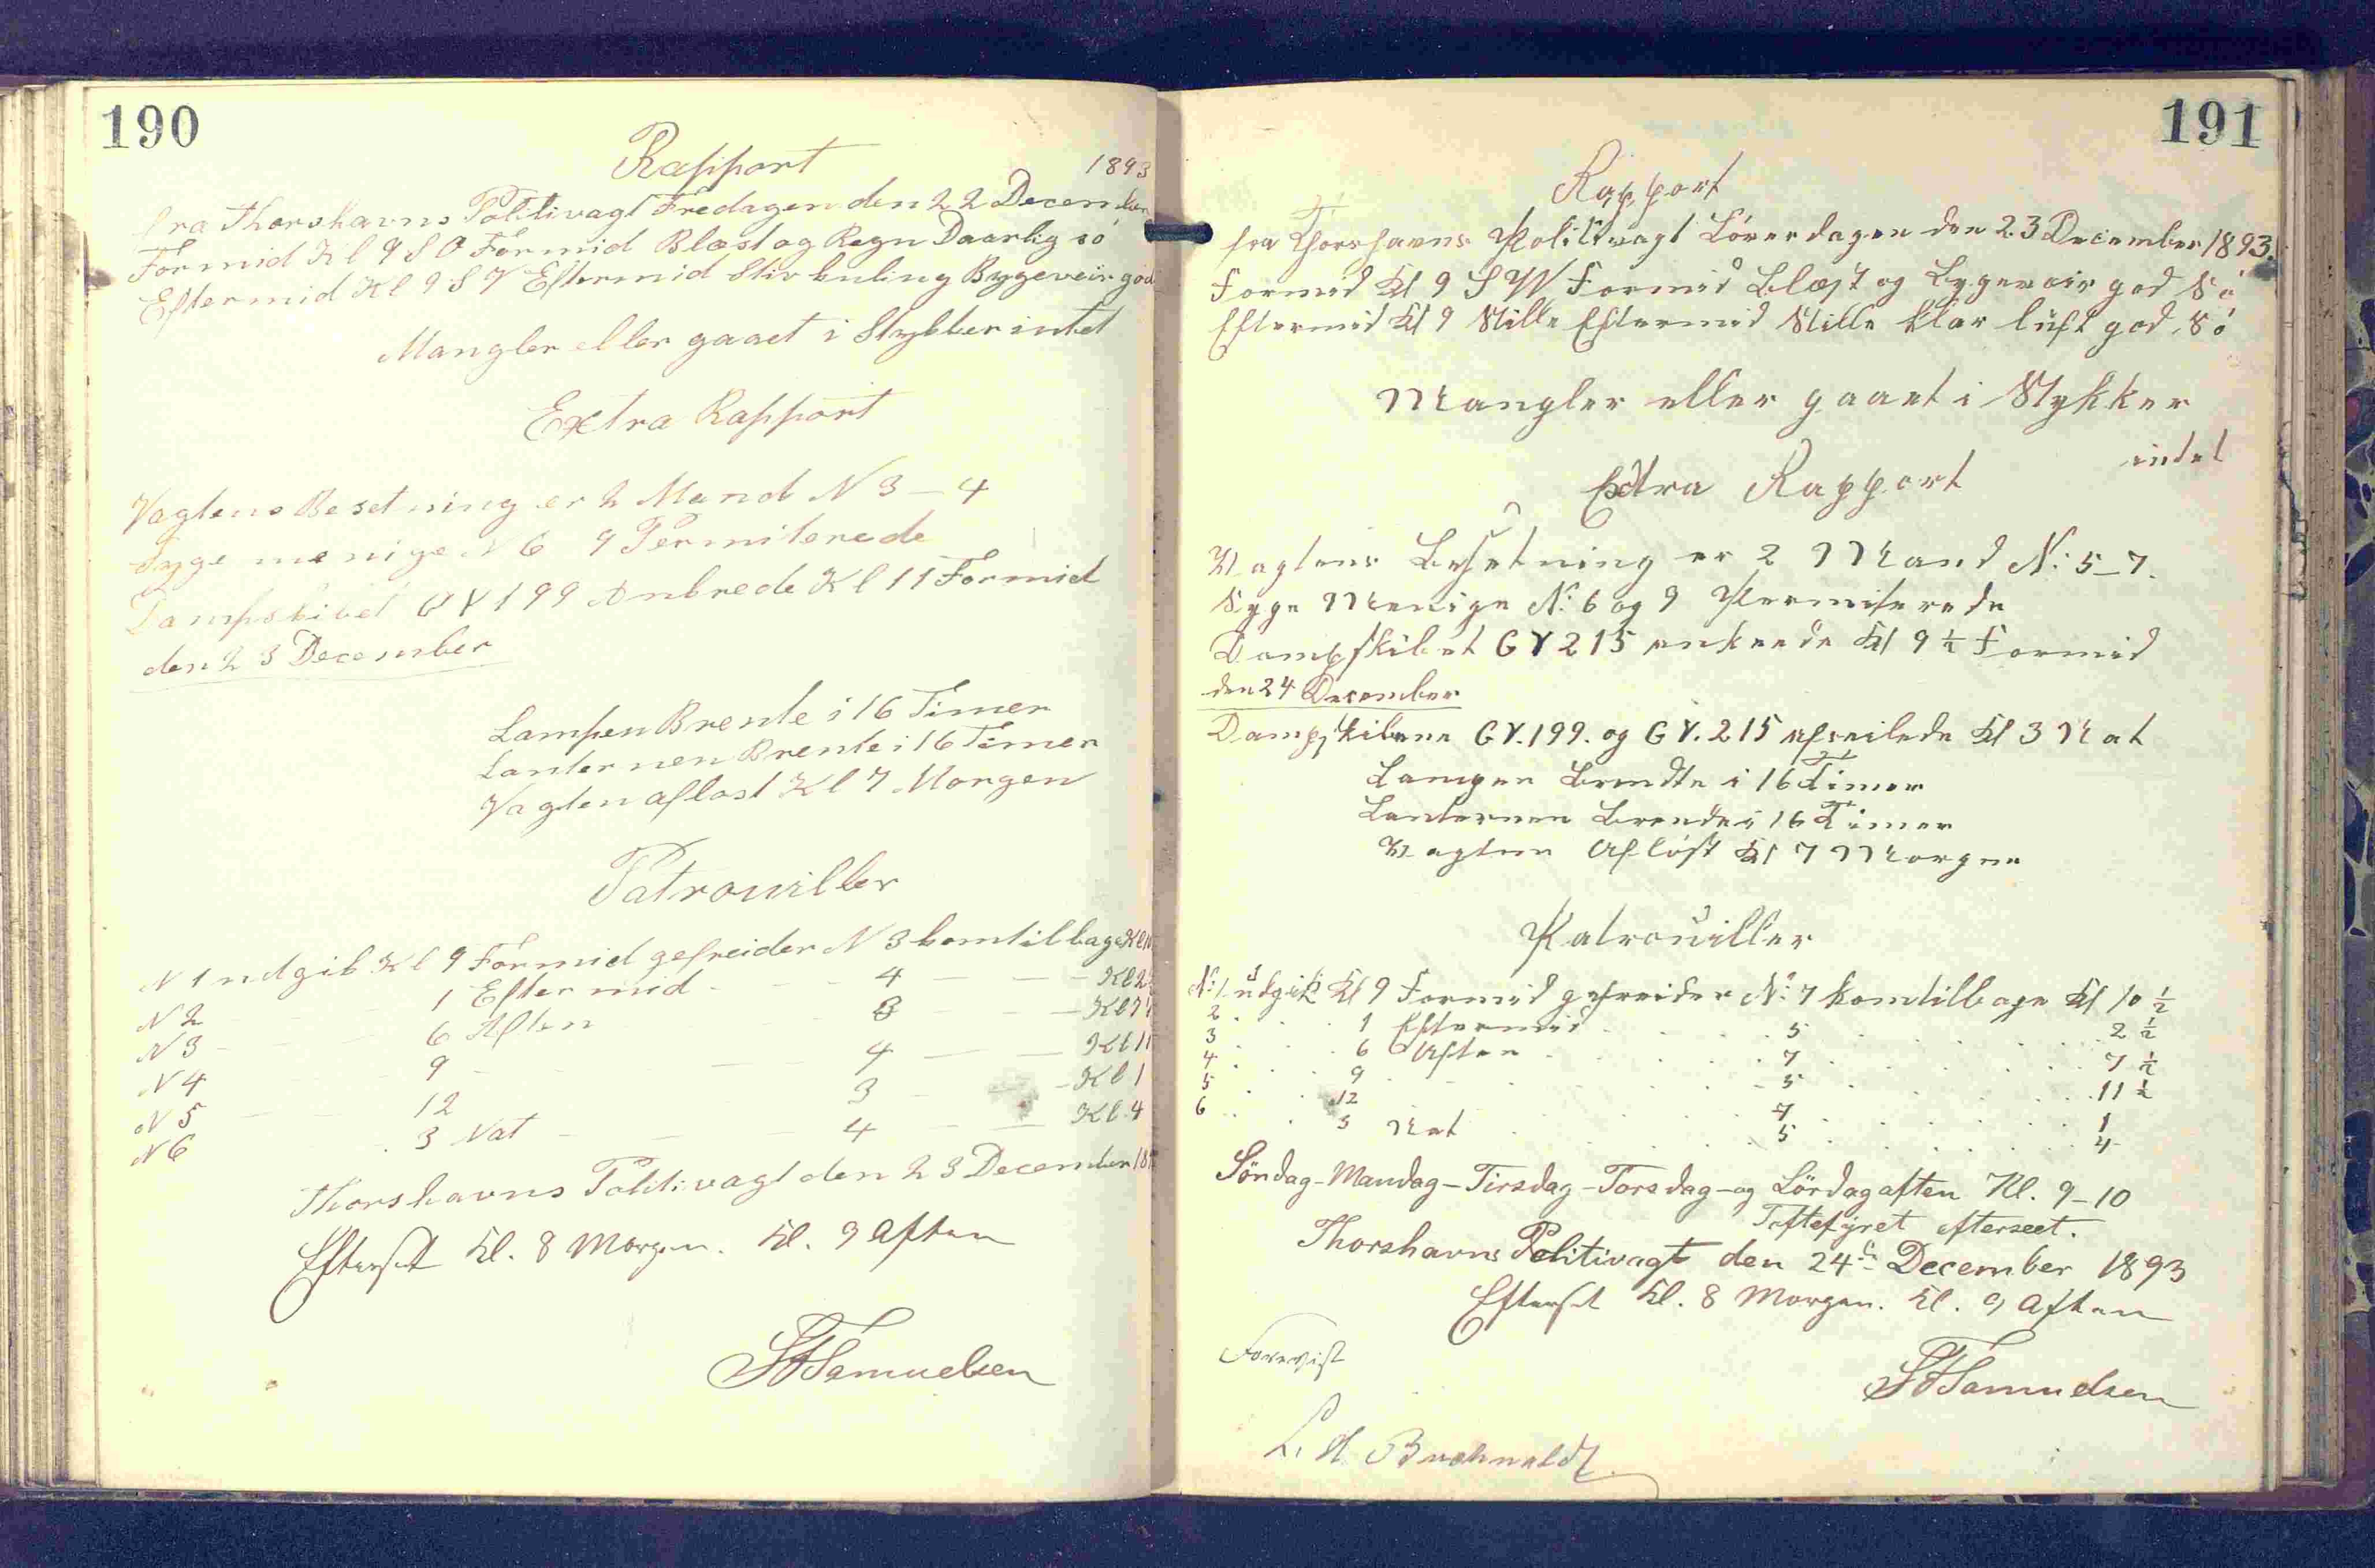 190
Rapport
1893
fra Thorshavns Politivagt Fredagen den 22 December
Formid Kl 9 S O Formid Blæst og Regn Daarlig sö
Eftermid Kl 9 S V Eftermid Stiv kuling Bygeveir god
Mangler eller gaaet i Stykker intet
Extra Rapport
Vagtens Besetning er 2 Mand N 3 – 4
Syge menige N 6 9 Permiterede
Dampskibet GY 199 Ankrede Kl 11 Formid
den 23 December
Lampen Brente i 16 Timer
Lanternen Brente i 16 Timer
Vagten aflöst Kl 7 Morgen
Patrouiller
N 1 udgik Kl 9 Formid gefreider N 3 kom tilbage Kl 10
N 2 1 Eftermid 4 Kl 2
N 3 6 Aften 3 Kl 7
N 4 9 4 Kl 11
N 5 12 3 Kl 1
N 6 3 Nat 4 Kl 4
Thorshavns Politivagt den 23 December 18
Efterset Kl. 8 Morgen. Kl. 9 Aften
Samuelsen
191
Rapport
fra Thorshavns Politivagt Löverdagen den 23 December 1893.
Formid Kl 9 S W Formid Blæst og Bygevair god Sö
Eftermid Kl 9 Stille Eftermid Stille klar luft god Sö
Mangler eller gaaet i Stykker
intet
Extra Rapport
Vagtens Besetning er 2 Mand N: 5–7.
Syge Menige N: 6 og 9 Permiterede
Dampskibet GY 215 ankrede Kl 9 ½ Formid
den 24 December
Dampskibene GY. 199. og GY. 215 afseilede Kl 3 Nat
Lampen Brendte i 16 Timer
Lanternen Brende i 16 Timer
Vagten Aflöst Kl 7 Morgen
Patrouiller
N: 1 udgik Kl 9 Formid gefreider N: 7 kom tilbage Kl 10 ½
2 . . . 1 Eftermid . . . 5 . . . 2 ½
3 . . . 6 Aften . . . 7 . . . 7 ½
4 . . . 9 . . . 5 . . . 11 ½
5 . . . 12 . . . 7 . . . 1
6 . . . 3 Nat . . . 5 . . . 4
Söndag – Mandag – Tirsdag – Torsdag – og Lördag aften Kl. 9–10
Toftefyret efterseet.
Thorshavns Politivagt den 24de December 1893
Efterset Kl. 8 Morgen. Kl. 9 Aften
Forevist
Samuelsen
L. A. Buchwaldt.